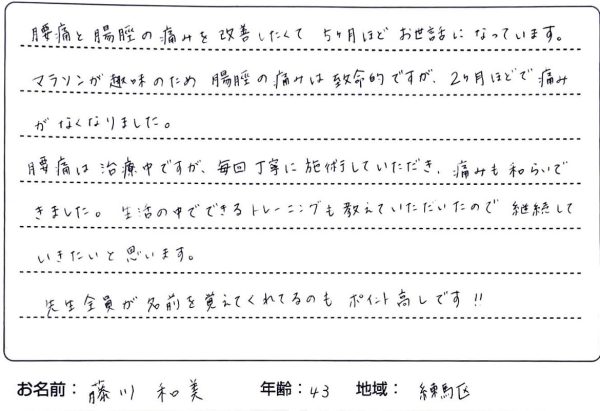 腰痛と腸脛の痛みを改善したくて 5ヶ月ほど お世話に なっています。
マラソンが趣味のため 腸脛の痛みは致命的ですが、2ヶ月ほどで痛み
がなくなりました。
腰痛は治療中ですが、毎回丁寧に施術していただき、痛みも和らいで
きました。生活の中でできるトレーニングも教えていただいたので継続して
いきたいと思います。
先生全員が名前を覚えてくれてるのも ポイント高しです!!
お名前: 藤川 和美 年齢: 43 地域: 練馬区